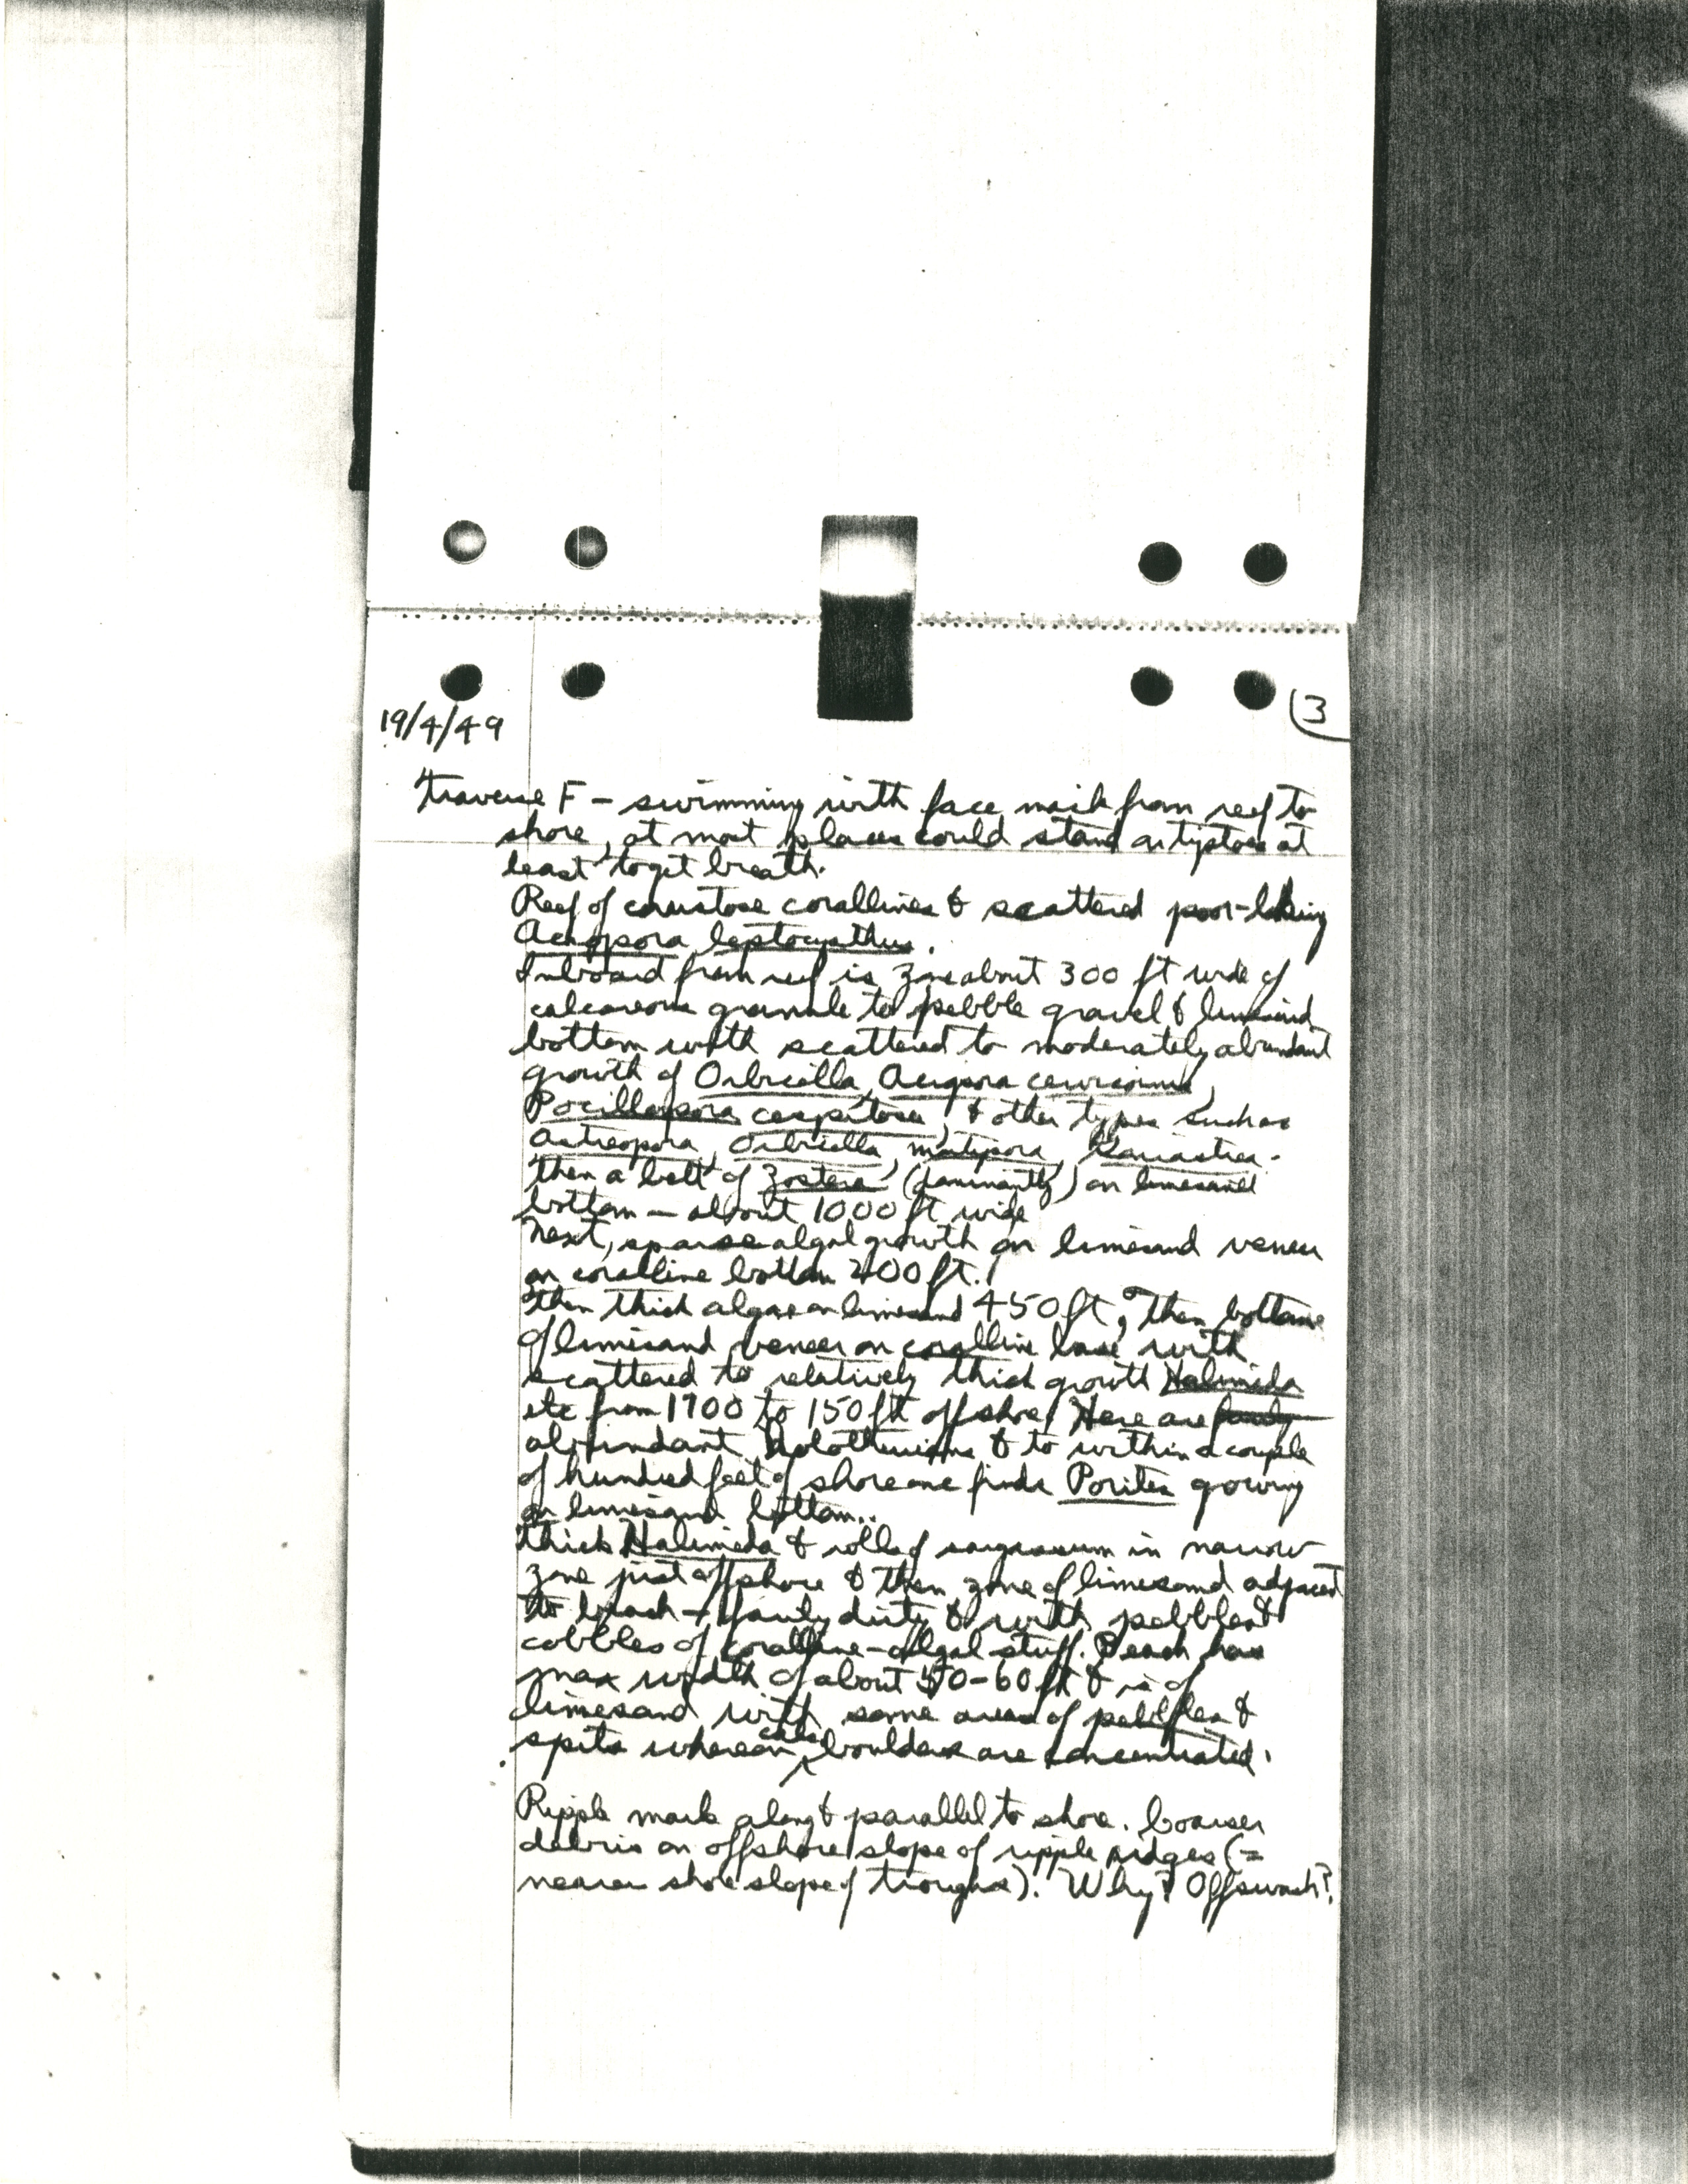 19/4/49
3
Traverse F - swimming with face mask from reef to
shore, at most places could stand on tiptoes at
least to get breath.
Reef of crustose corallines & scattered poor-looking
Acropora leptocyathus.
Inboard from reef is zone about 300 ft wide of
calcareous granule to pebble gravel & limesand
bottom with scattered to moderately abundant
growth of Orbicella, Acropora cervicornis,
Pocillopora caespitosa, & other types such as
Astreopora, Orbicella, Montipora,
Then a belt of Zostera (dominantly) on limesand
bottom - about 1000 ft wide
Next, sparse algal growth on limesand veneer
on coralline bottom 400 ft.
Then thick algae on limesand 450 ft, Then bottom
of limesand veneer on coralline base with
scattered to relatively thick growth Halimeda
etc from 1700 to 150 ft offshore. Here are fairly
abundant holothurians & to within a couple
of hundred feet of shore one finds Porites growing
on limesand bottom..
Thick Halimeda & rolled sargassum in narrow
zone just offshore & then zone of limesand adjacent
to beach - fairly dirty & with pebbles &
cobbles of coralline-algal stuff. Beach has
max width of about 50-60 ft & is of
limesand with some areas of pebbles &
spits whereon boulders are concentrated.
Ripple mark along & parallel to shore. Coarser
debris on offshore slope of ripple ridges (=
nearer shore slope of troughs). Why? Offswash?